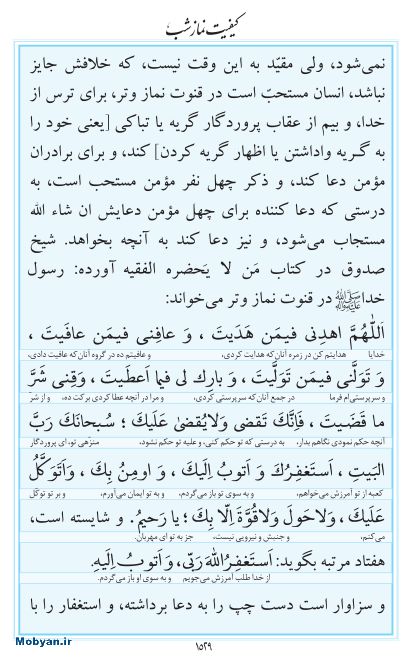 کیفیت نماز شب
نمی‌شود، ولی مقیّد به این وقت نیست، که خلافش جایز
نباشد، انسان مستحبّ است در قنوت نماز وتر، برای ترس از
خدا، و بیم از عقاب پروردگار گریه یا تباکی [یعنی خود را
به گـریه واداشتن یا اظهار گریه کردن] کند، و برای برادران
مؤمن دعا کند، و ذکر چهل نفر مؤمن مستحب است، به
درستی که دعا کننده برای چهل مؤمن دعایش ان شاء الله
مستجاب می‌شود، و نیز دعا کند به آنچه بخواهد. شیخ
صدوق در کتاب مَن لا یَحضره الفقیه آورده: رسول
خداﷺ در قنوت نماز وتر می‌خواند:
اَللّٰهُمَّ اهدِنی فیمَن هَدَیتَ ، وَ عافِنی فیمَن عافَیتَ ،
خدایا هدایتم کن در زمره آنان‌که هدایت کردی، و عافیتم ده در گروه آنان‌که عافیت دادی،
وَ تَوَلَّنی فیمَن تَوَلَّیتَ ، وَ بارِك لی فیما اَعطَیتَ ، وَقِنی شَرَّ
و سرپرستی‌ام فرما در جمع آنان‌که سرپرستی کردی، و مرا در آنچه عطا کردی برکت ده، و از شر
ما قَضَیتَ ، فَاِنَّكَ تَقضی وَلایُقضیٰ عَلَیكَ ؛ سُبحانَكَ رَبَّ
آنچه حکم نمودی نگاهم بدار، به درستی که تو حکم کنی، و علیه تو حکم نشود، منزّهی تو، ای پروردگار
البَیتِ ، اَستَغفِرُكَ وَ اَتوبُ اِلَیكَ ، وَ اومِنُ بِكَ ، وَاَتَوَكَّلُ
کعبه از تو آمرزش می‌خواهم، و به سوی تو باز می‌گردم، و به تو ایمان می‌آورم، و بر تو توکّل
عَلَیكَ ، وَلاحَولَ وَلاقُوَّةَ اِلّا بِكَ ؛ یا رَحیمُ. و شایسته است،
می‌کنم، و جنبش و نیرویی نیست، جز به تو ای مهربان.
هفتاد مرتبه بگوید: اَستَغفِرُ اللهَ رَبّی، وَ اَتوبُ اِلَیهِ.
از خدا طلب آمرزش می‌جویم و به سوی او باز می‌گردم.
و سزاوار است دست چپ را به دعا برداشته، و استغفار را با
Mobyan.ir
۱۵۲۹